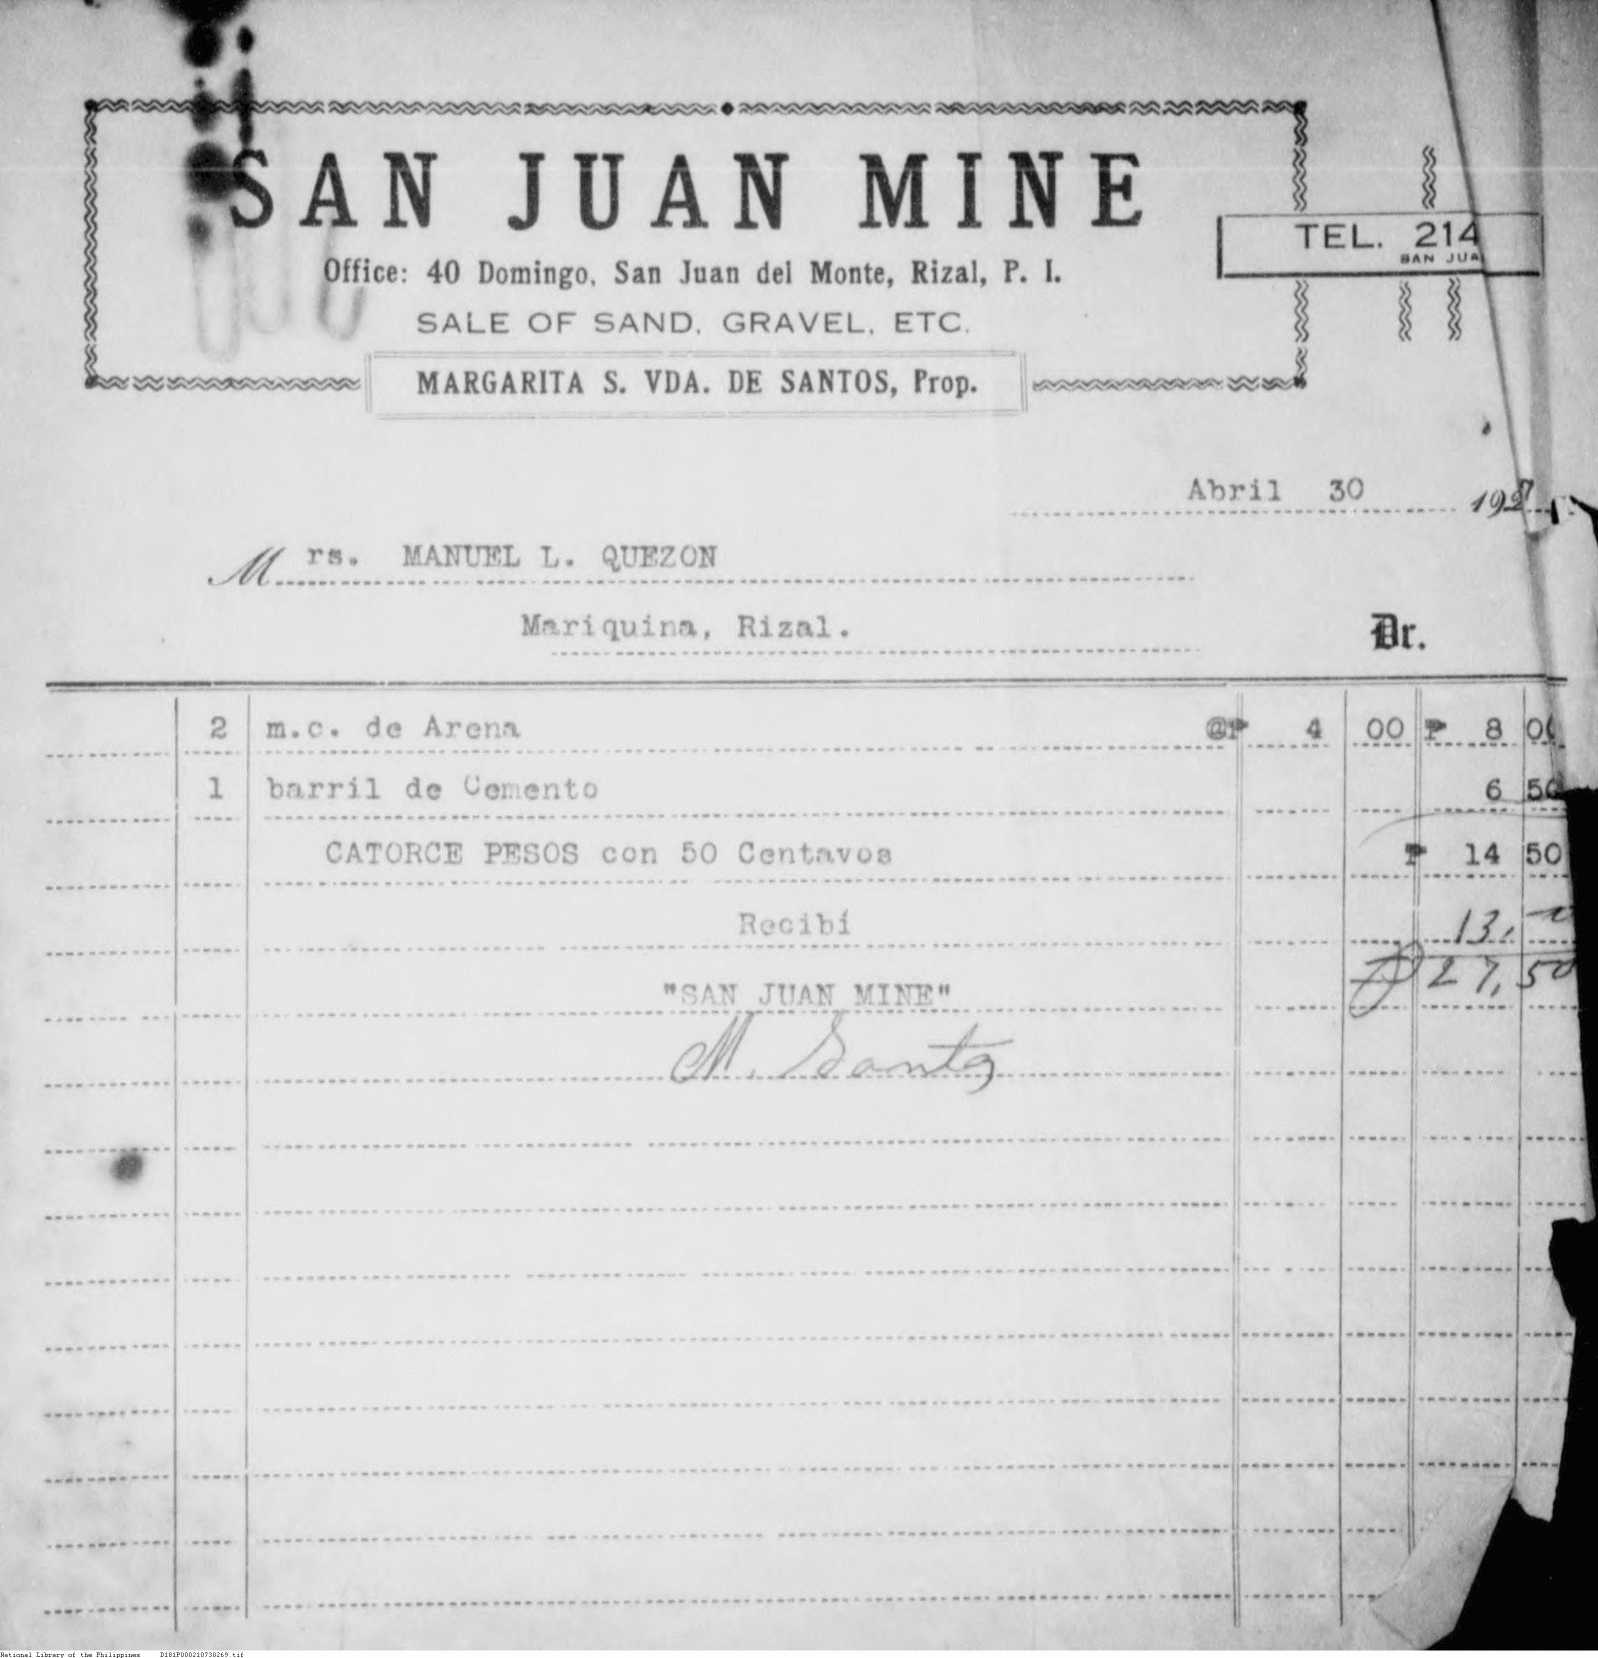 SAN JUAN MINE
Office: 40 Domingo, San Juan del Monte, Rizal, P. I.
SALE OF SAND, GRAVEL, ETC.
MARGARITA S. VDA. DE SANTOS, Prop.
TEL. 214
SAN JUA
Abril 30 1927
Mrs. MANUEL L. QUEZON
Mariquina, Rizal.
Dr.
2 m.c. de Arena @₱ 4 00 ₱ 8 00
1 barril de Cemento 6 50
CATORCE PESOS con 50 Centavos ₱ 14 50
Recibí 13,
"SAN JUAN MINE" ₱ 27,50
M. Santos
National Library of the Philippines D181P000210738269.tif